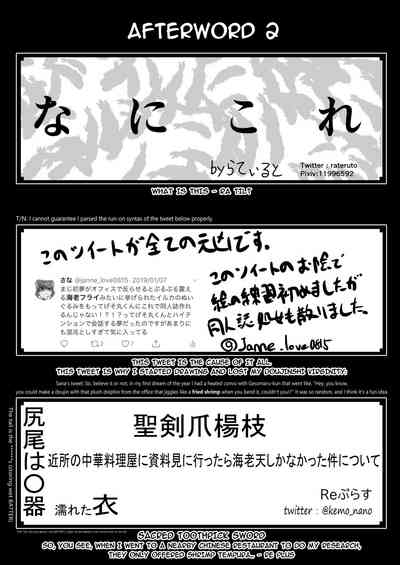 AFTERWORD 2
なにこれ
byらてぃると
Twitter : rateruto
Pixiv:11996592
WHAT IS THIS - RA TILT
T/N: I cannot guarantee I parsed the run-on syntax of the tweet below properly.
このツイートが全ての元凶です。
さな @janne_love0815 · 2019/01/07
まじ初夢がオフィスで反らせるとぷるぷる震える海老フライみたいに挙げられたイルカのぬいぐるみをもってげそ丸くんにこれで同人誌作れるんじゃない！？！？ってげそ丸くんとハイテンションで会話する夢だったのですがあまりにも混沌としすぎて気に入ってる
このツイートのお陰で
絵の練習初めましたが
同人誌処女も散りました。
@Janne_love0815
THIS TWEET IS THE CAUSE OF IT ALL.
THIS TWEET IS WHY I STARTED DRAWING AND LOST MY DOUJINSHI VIRGINITY:
Sana's tweet: So, believe it or not, in my first dream of the year I had a heated convo with Gesomaru-kun that went like, "Hey, you know,
you could make a doujin with that plush dolphin from the office that jiggles like a fried shrimp when you bend it, couldn't you!?" It was so random and nonsensical, and I think it's a fun idea.
尻尾は〇器
聖剣爪楊枝
近所の中華料理屋に資料見に行ったら海老天しかなかった件について
濡れた衣
Reぷらす
twitter : @kemo_nano
SACRED TOOTHPICK SWORD
SO, YOU SEE, WHEN I WENT TO A NEARBY CHINESE RESTAURANT TO DO MY RESEARCH,
THEY ONLY OFFERED SHRIMP TEMPURA... - RE PLUS